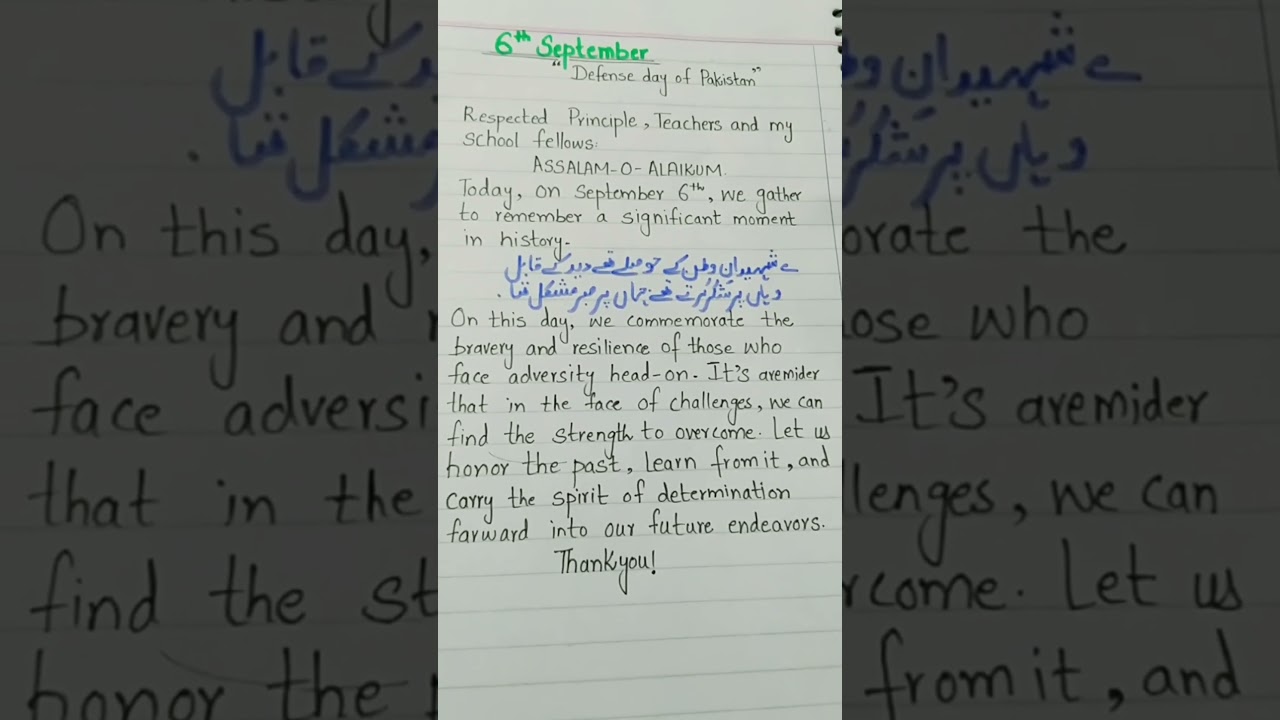 6th September
"Defense day of Pakistan"
Respected Principle, Teachers and my
School fellows:
ASSALAM-O-ALAIKUM.
Today, on September 6th, we gather
to remember a significant moment
in history-
ے شہیدان وطن کے حوصلے تھے دید کے قابل
وہاں پر شکر کرتے تھے جہاں پر صبر مشکل تھا.
On this day, we commemorate the
bravery and resilience of those who
face adversity head-on. It's aremider
that in the face of challenges, we can
find the strength to overcome. Let us
honor the past, learn from it, and
carry the spirit of determination
farward into our future endeavors.
Thankyou!